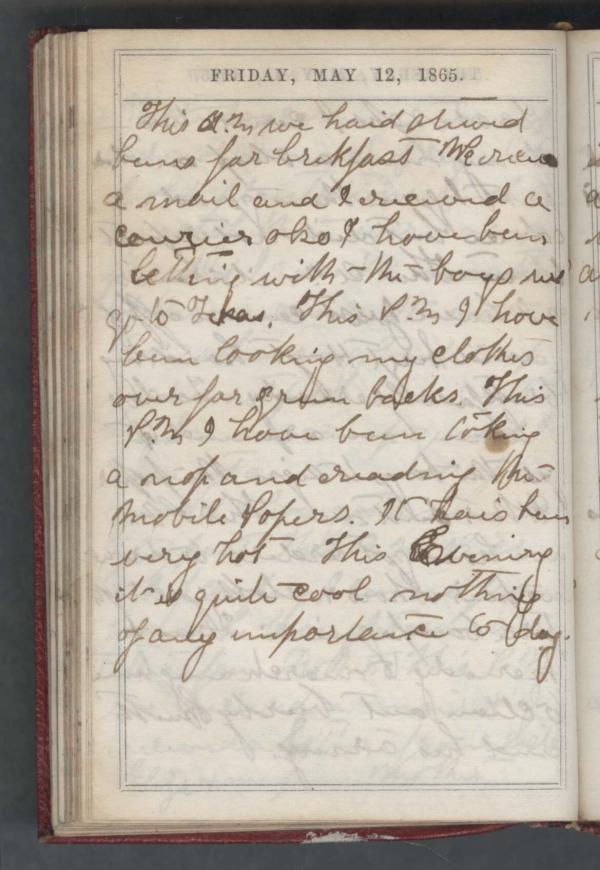 FRIDAY, MAY 12, 1865.
This A.M we haid stewed
beens for brekfast We
a mail and I recived a
courier also I have been
betting with the boys we
go to Texas. This P.M I have
been looking my clothes
over for green backs. This
P.M I have been taking
a nap and reading the
Mobile Papers. It hais been
very hot This Evening
it is quite cool nothing
of any importance to day.